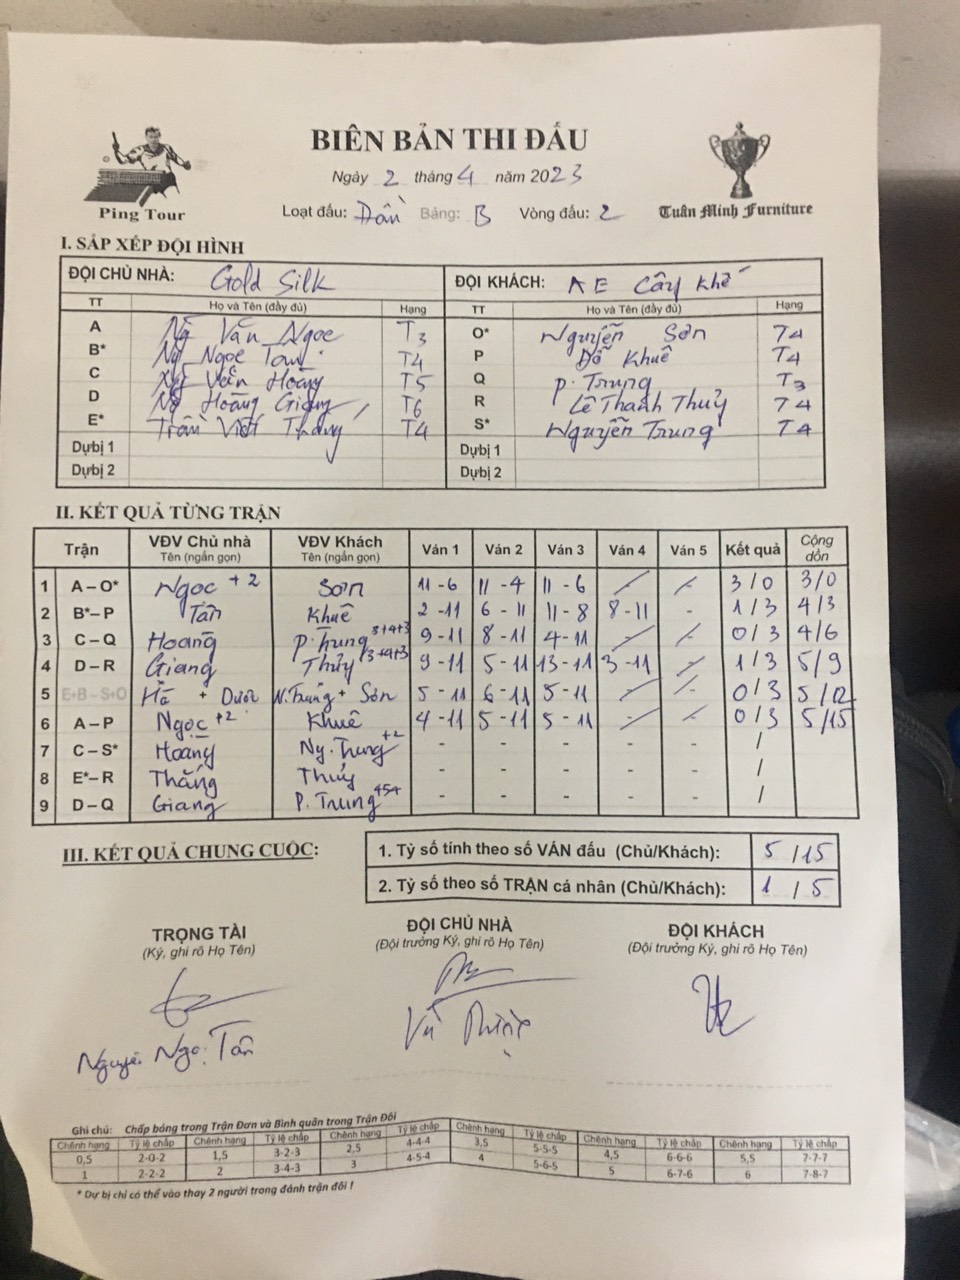 BIÊN BẢN THI ĐẤU
Ngày 2 tháng 4 năm 2023
Ping Tour
Loạt đấu: Dồn Bảng: B Vòng đấu: 2
Tuấn Minh Furniture
I. SẮP XẾP ĐỘI HÌNH
ĐỘI CHỦ NHÀ: Gold Silk ĐỘI KHÁCH: AE Cây Khế
TT Họ và Tên (đầy đủ) Hạng TT Họ và Tên (đầy đủ) Hạng
A Văn Ngọc T3 O* Nguyễn Sơn T4
B* Ngọc Tân T4 P Đỗ Khuê T4
C Văn Hoàng T5 Q P. Trung T3
D Hoàng Giang T6 R Lê Thanh Thuỷ T4
E* Trần Việt Thắng T4 S* Nguyễn Trung T4
Dự bị 1 Dự bị 1
Dự bị 2 Dự bị 2
II. KẾT QUẢ TỪNG TRẬN
Trận VĐV Chủ nhà Tên (ngắn gọn) VĐV Khách Tên (ngắn gọn) Ván 1 Ván 2 Ván 3 Ván 4 Ván 5 Kết quả Cộng dồn
1 A – O* Ngọc +2 Sơn 11 - 6 11 - 4 11 - 6 - - 3 / 0 3/0
2 B* – P Tân Khuê 2 - 11 6 - 11 11 - 8 8 - 11 - 1 / 3 4/3
3 C – Q Hoàng P. Trung 3+4+3 9 - 11 8 - 11 4 - 11 - - 0 / 3 4/6
4 D – R Giang Thủy 3+4+3 9 - 11 5 - 11 13 - 11 3 - 11 - 1 / 3 5/9
5 E+B – S+O Hà + Dươi N. Trung + Sơn 5 - 11 6 - 11 5 - 11 - - 0 / 3 5/12
6 A – P Ngọc +2 Khuê 4 - 11 5 - 11 5 - 11 - - 0 / 3 5/15
7 C – S* Hoàng Ng. Trung +2 - - - - - /
8 E* – R Thắng Thủy - - - - - /
9 D – Q Giang P. Trung 454 - - - - - /
III. KẾT QUẢ CHUNG CUỘC:
1. Tỷ số tính theo số VÁN đấu (Chủ/Khách): 5 / 15
2. Tỷ số theo số TRẬN cá nhân (Chủ/Khách): 1 / 5
TRỌNG TÀI ĐỘI CHỦ NHÀ ĐỘI KHÁCH
(Ký, ghi rõ Họ Tên) (Đội trưởng Ký, ghi rõ Họ Tên) (Đội trưởng Ký, ghi rõ Họ Tên)
Nguyễn Ngọ. Tân Vũ
Ghi chú: Chấp bóng trong Trận Đơn và Bình quân trong Trận Đôi
Chênh hạng Tỷ lệ chấp Chênh hạng Tỷ lệ chấp Chênh hạng Tỷ lệ chấp Chênh hạng Tỷ lệ chấp Chênh hạng Tỷ lệ chấp Chênh hạng Tỷ lệ chấp
0,5 2-0-2 1,5 3-2-3 2,5 4-4-4 3,5 5-5-5 4,5 6-6-6 5,5 7-7-7
1 2-2-2 2 3-4-3 3 4-5-4 4 5-6-5 5 6-7-6 6 7-8-7
* Dự bị chỉ có thể vào thay 2 người trong đánh trận đôi !